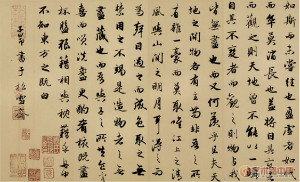 如斯而未嘗往也蓋將自其變者
而觀之則天地曾不能以一瞬
自其不變者而觀之則物與我
皆無盡也而又何羨乎且夫天
地之間物各有主苟非吾之所
有雖一毫而莫取惟江上之清
風與山間之明月耳得之而
為聲目遇之而成色取之無
禁用之不竭是造物者之無
盡藏也而吾與子之所共食客
喜而笑洗盞更酌肴核既盡
杯盤狼籍相與枕藉乎舟中
不知東方之既白
子昂書于松雪齋